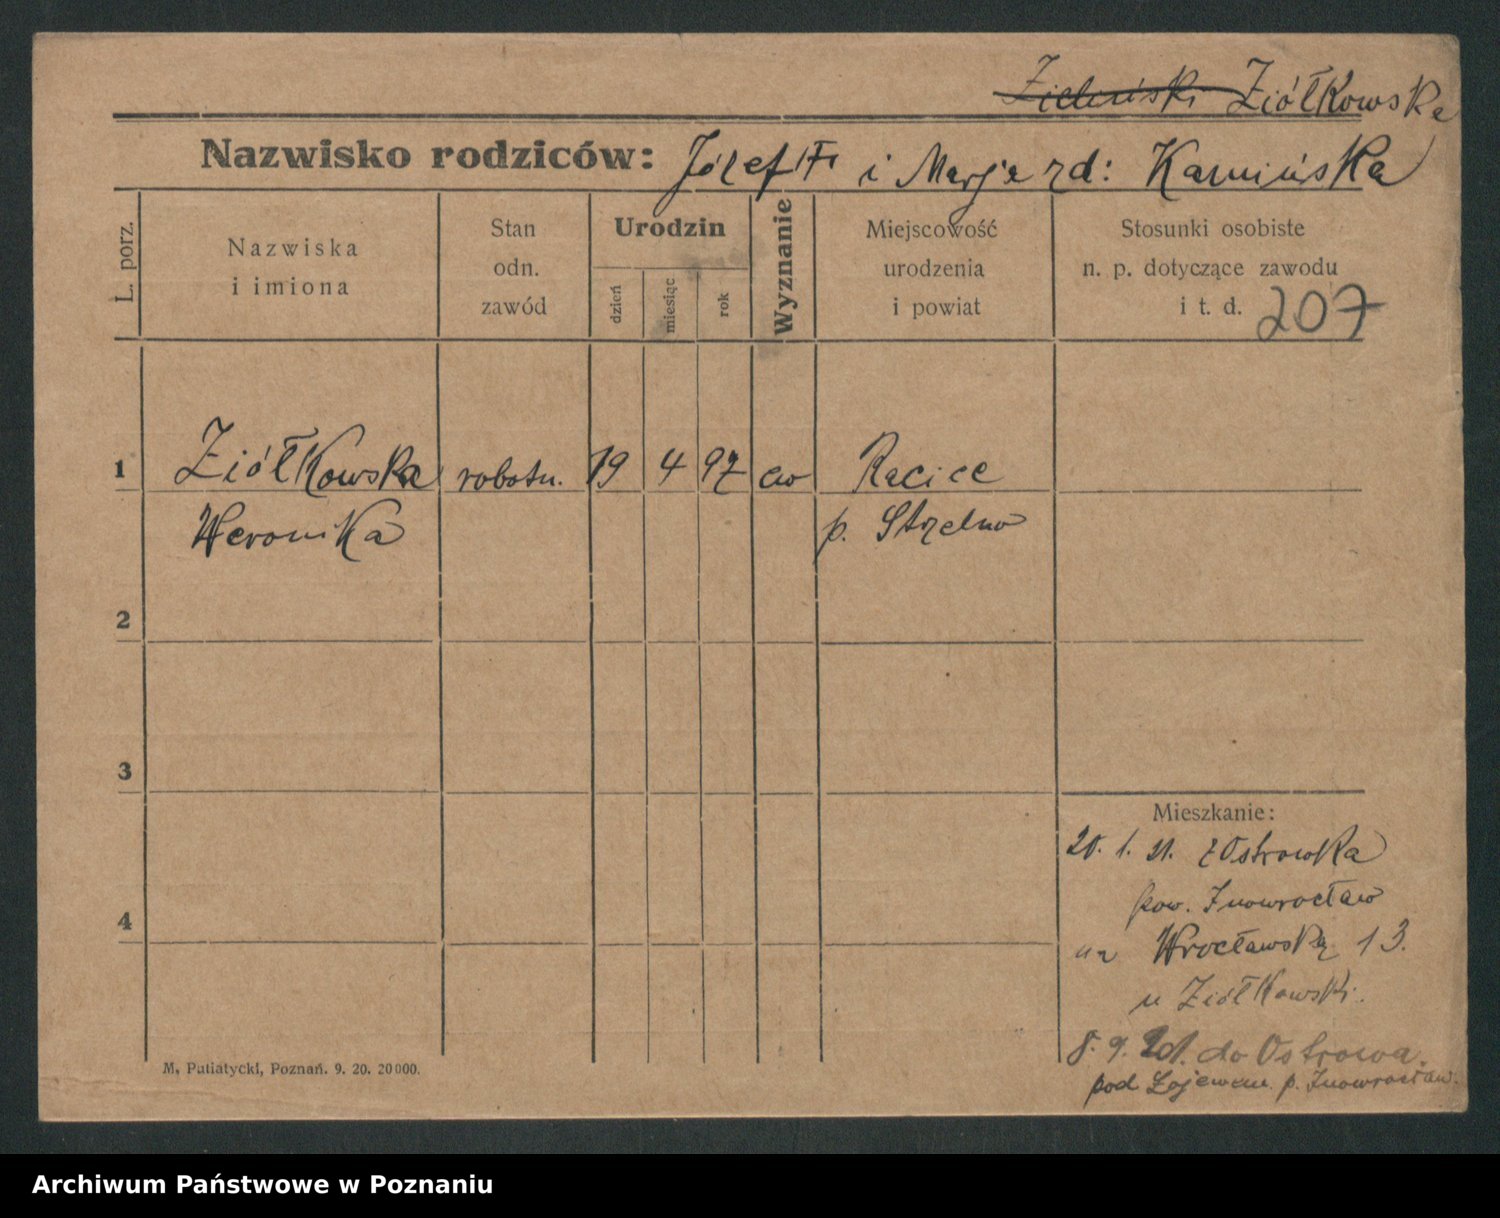 Zieliński Ziółkowska
Nazwisko rodziców: Józef i Marja rd: Kamińska
L. porz.
Nazwiska
i imiona
Stan
odn.
zawód
Urodzin
dzień
miesiąc
rok
Wyznanie
Miejscowość
urodzenia
i powiat
Stosunki osobiste
n. p. dotyczące zawodu
i t. d. 207
1 Ziółkowska robotn. 19 4 97 Racice
Weronika p. Strzelno
2
3
Mieszkanie:
20. 1. 21. z Ostrowka
pow. Inowrocław
4
na Wrocławską 13.
u Ziółkowski.
8. 9. 21. do Ostrowa
pod p. Inowrocław.
M. Putiatycki, Poznań. 9. 20. 20000.
Archiwum Państwowe w Poznaniu